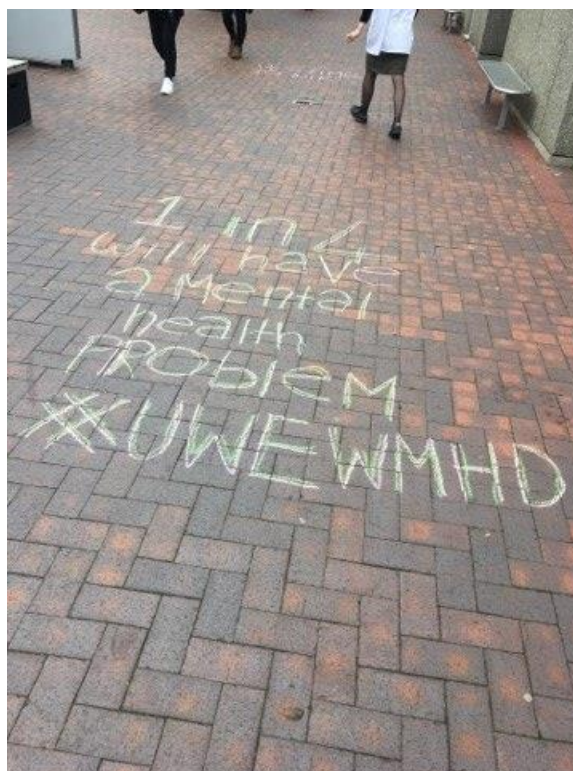 1 in
will have
a Mental
health
PROblEM
#UWEWMHD